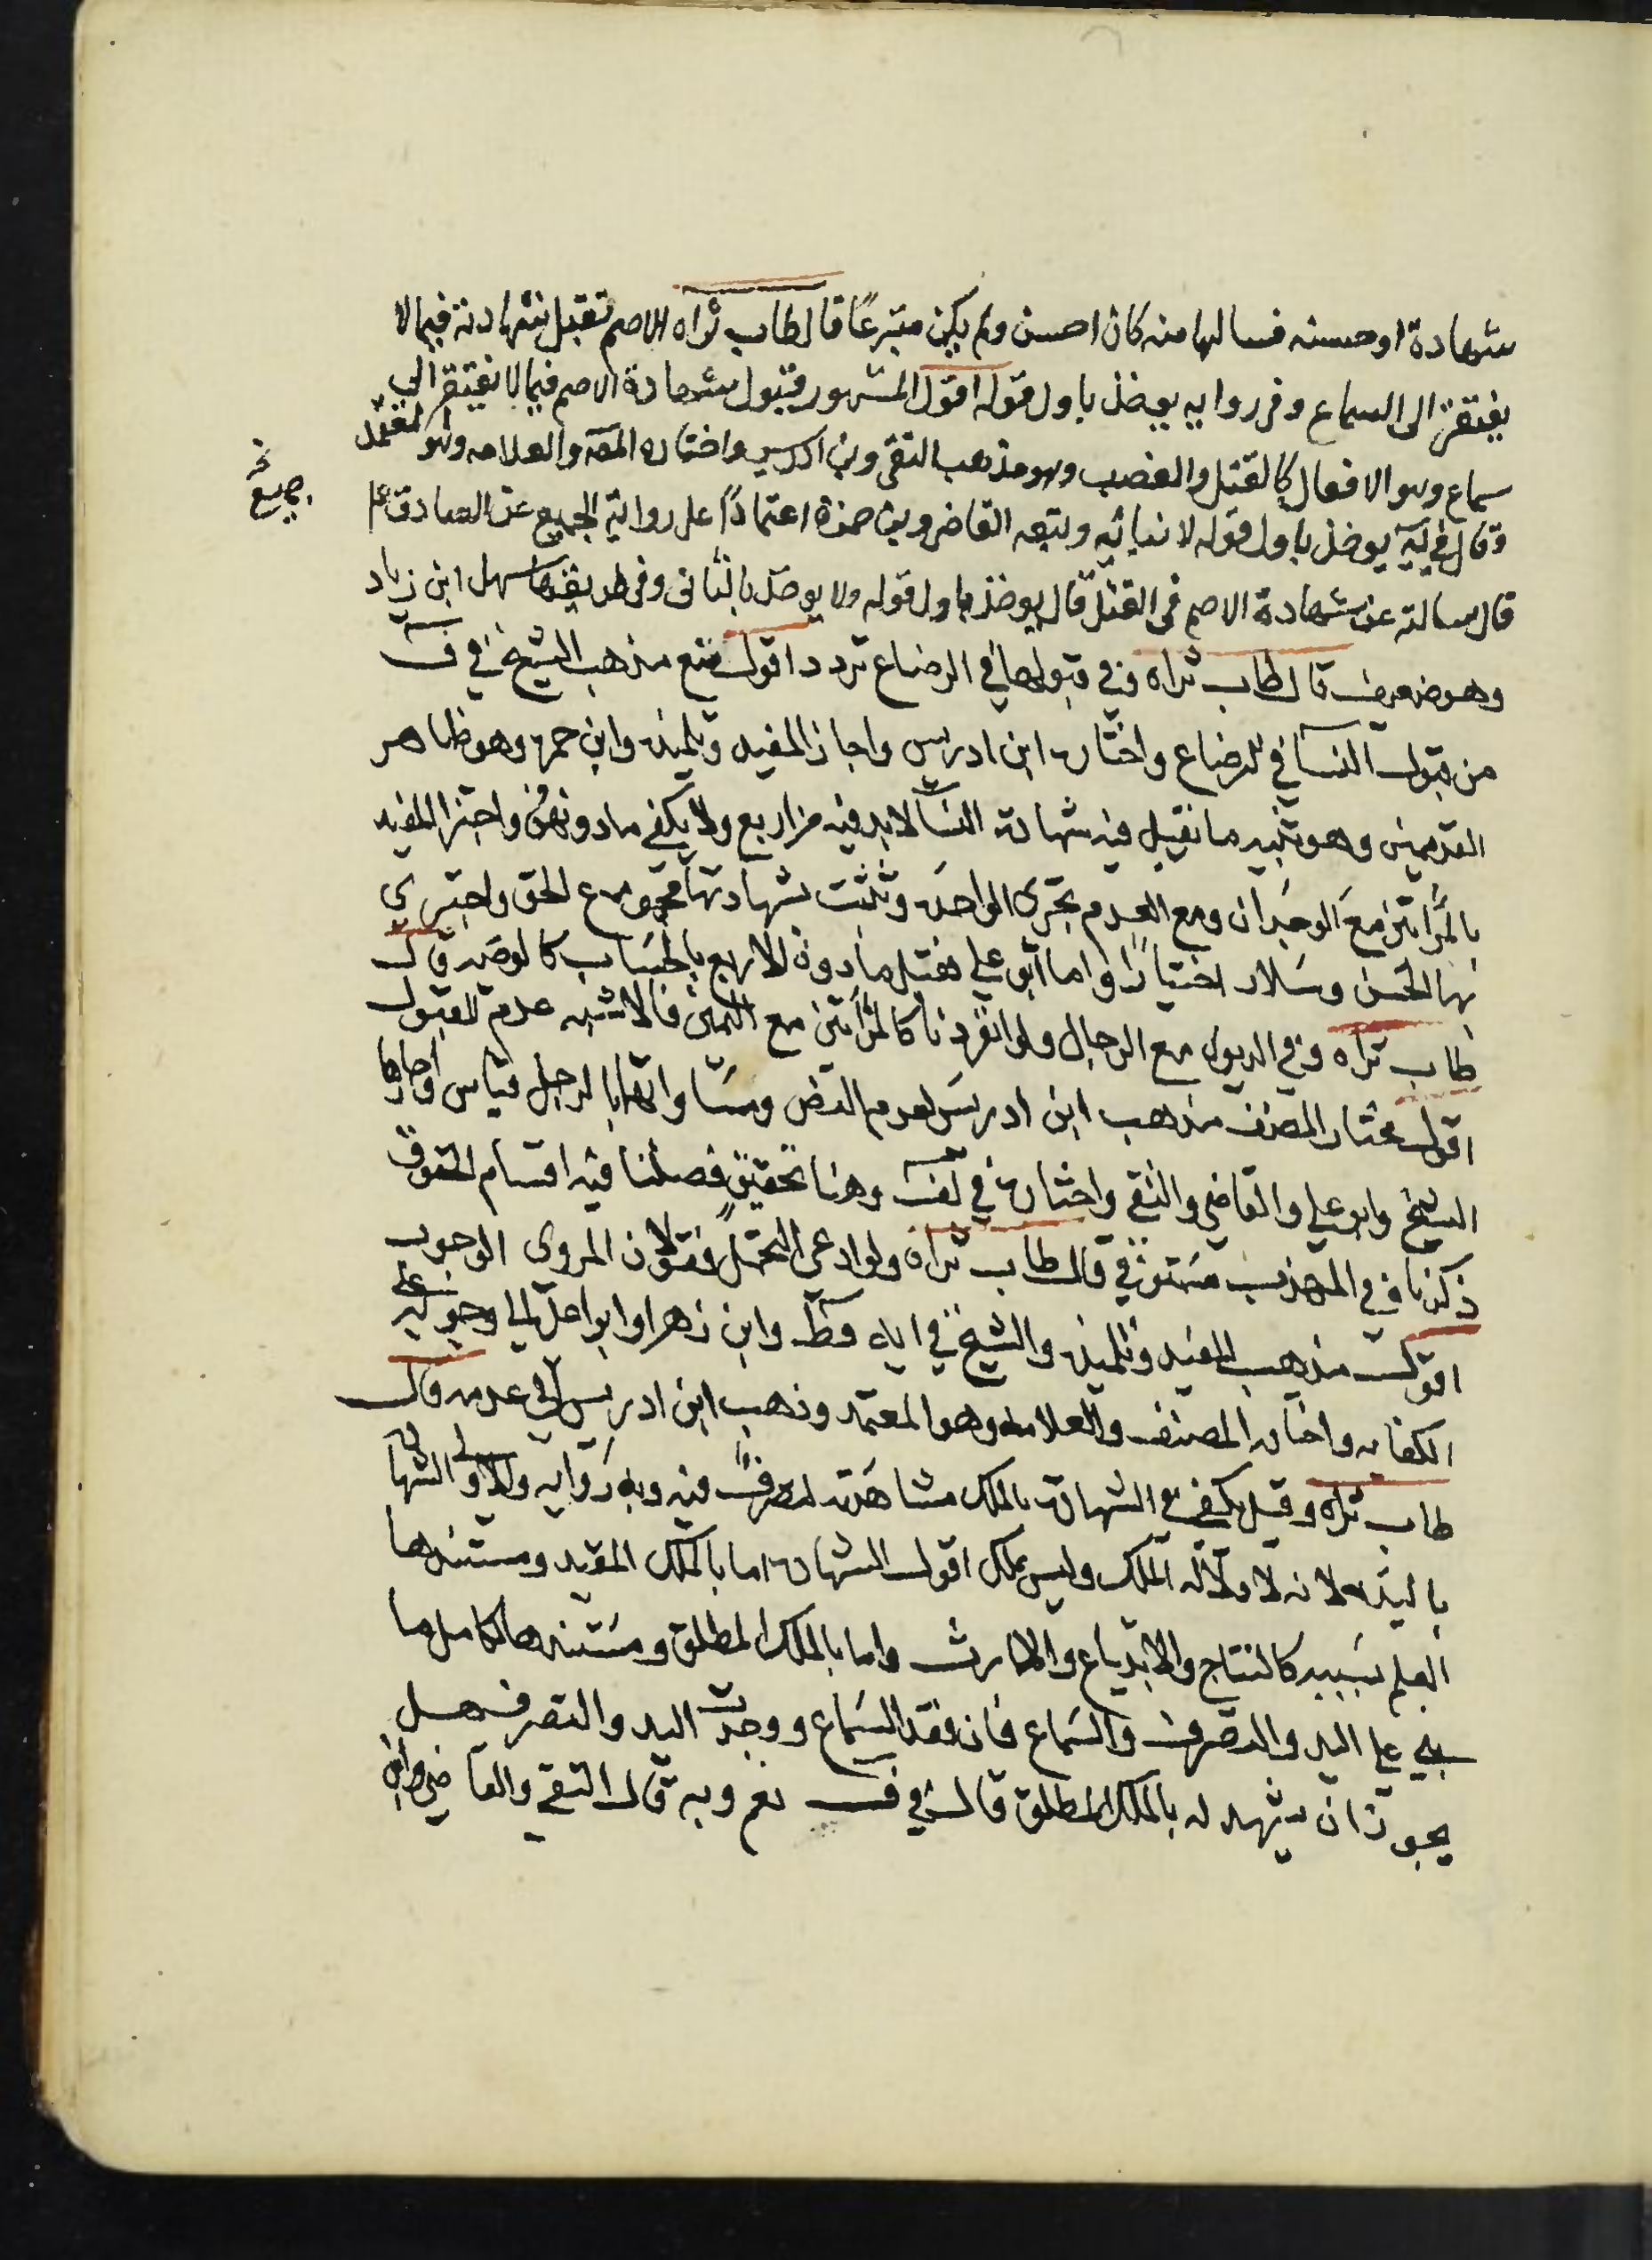 شهادة او حسبة فسالها منه كان احسن ولم يكن متبرعًا قال طاب ثراه الاصم تقبل شهادته فيما لا
يفتقر الى السماع وفى رواية يوخذ باول قوله اقول المشهور قبول شهادة الاصم فيما لا يفتقر الى
سماع وهو الافعال كالقتل والغصب وهو مذهب التقى وبن ادريس واختاره المص والعلامه وهو المعتمد
وقال فى ية يوخذ باول قوله لا ثانيه وتبعه القاضى وبن حمزة اعتمادًا على رواية الجميع عن الصادق ع
جميع خ
قال سالته عن شهادة الاصم فى القتل قال يوخذ باول قوله ولا يوخذ بالثانى وفى طريقها سهل ابن زياد
وهو ضعيف قال طاب ثراه وفي قبولها في الرضاع تردد اقول منع مذهب الشيخ في ف
من قبول النسا في الرضاع واختاره ابن ادريس واجاز المفيد وتلميذه وابن حمزه وهو ظاهر
القديمين وهو تنبيه ما تقبل فيه شهادة النسا لا بد فيه من اربع ولا يكفي ما دونهن واجتزا المفيد
بالمراتين مع الوجدان ومع العدم تجزى الواحده وتثبت بشهادتها مجموع الحق واجتزى
بها الحسن وسلار اختيارًا واما ابو علي فقبل ما دون الاربع بالحساب كالوصيه قال
طاب ثراه وفي الديون مع الرجال ولو انفردتا كالمراتين مع اليمين فالاشبه عدم القبول
اقول مختار المصنف مذهب ابن ادريس لعدم النص ومساواتها بالرجل قياس واجازها
الشيخ وابو علي والقاضي والتقي واختاره في لف وهنا تحقيق فصلنا فيه اقسام الحقوق
ذكرناه في المهذب مستوفي قال طاب ثراه ولو ادعى التحمل فقولان المروى الوجوب
اقول مذهب المفيد وتلميذه والشيخ في اياه وط وابن زهرا وابو احمد الى وجوبه على
الكفايه واختاره المصنف والعلامه وهو المعتمد وذهب ابن ادريس الى عدمه قال
طاب ثراه وقيل يكفي في الشهادة بالملك مشاهدته لتصرف فيه وبه روايه والاولى الشهادة
باليد لانه لا دلاله الملك وليس بملك اقول الشهادة اما بالملك المقيد ومستندها
العلم بسببه كالنتاج والابتياع والارث واما بالملك المطلق ومستندها لكامل ما
بني على اليد والتصرف والسماع فان فقد السماع ووجدت اليد والتصرف هل
يجوز ان يشهد له بالملك المطلق قال في ف نعم وبه قال التقي والقاضي وابن